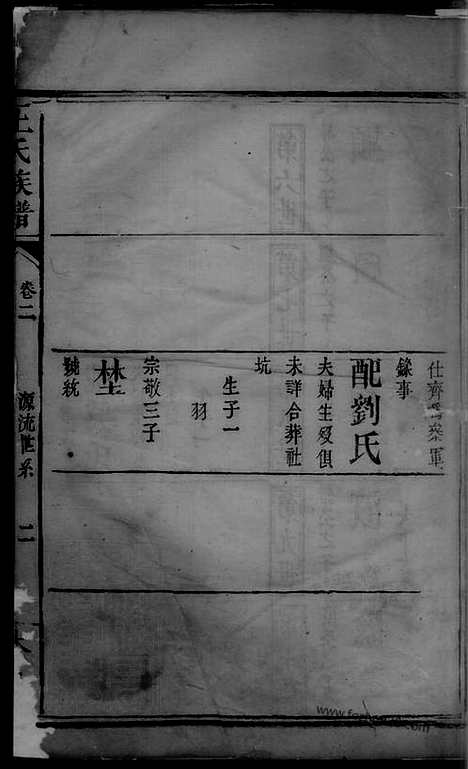 仕齊爲叅軍
錄事
配劉氏
夫婦生歿俱
未詳合葬社
坑
生子一
羽
埜
宗敬三子
王氏族譜
卷二
源流世系
二